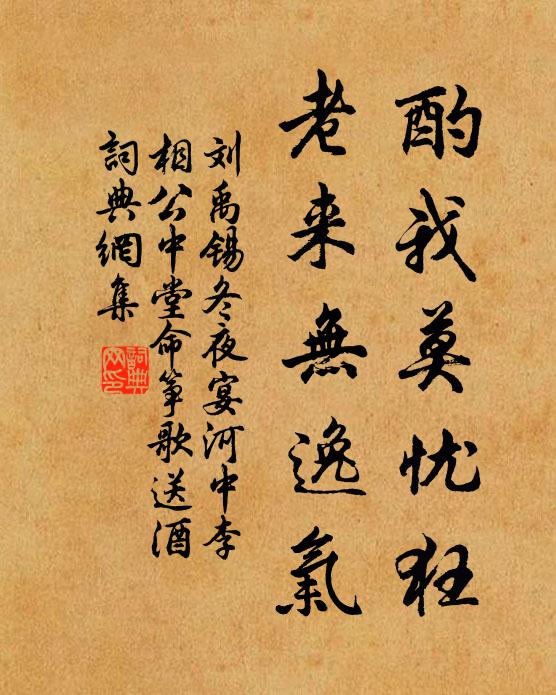 酌我莫忧狂
老来無逸氣
刘禹锡冬夜宴河中李
相公中堂命筝歌送酒
詞典網集
詞典網印